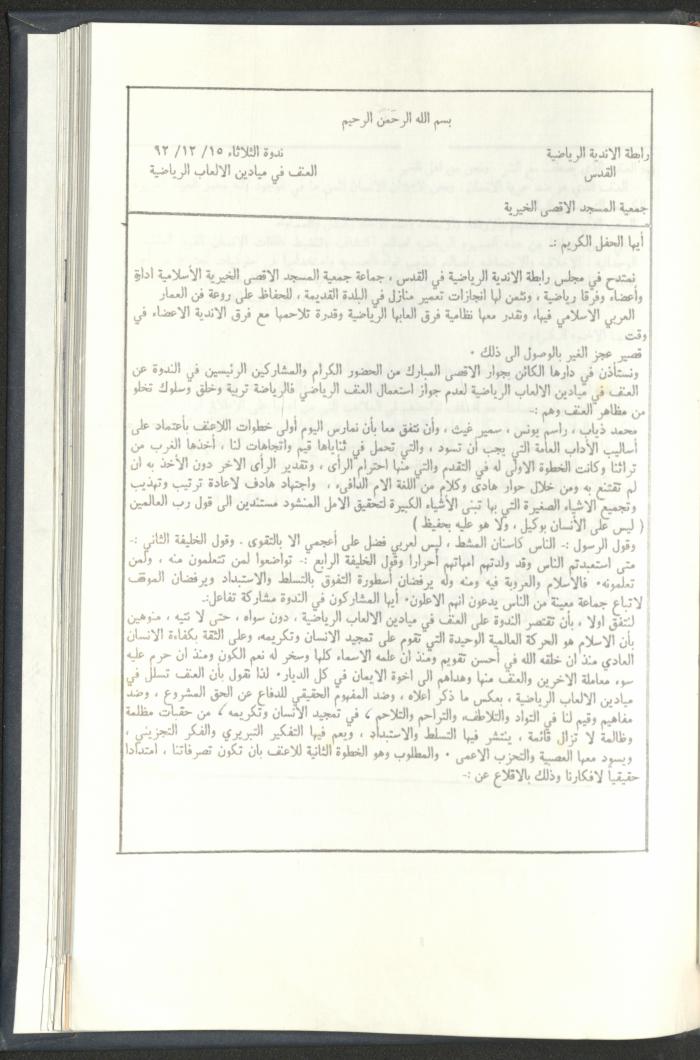 بسم الله الرحمن الرحيم
رابطة الاندية الرياضية ندوة الثلاثاء ١٥/ ١٢/ ٩٢
القدس العنف في ميادين الالعاب الرياضية
جمعية المسجد الاقصى الخيرية
أيها الحفل الكريم :ـ
نمتدح في مجلس رابطة الاندية الرياضية في القدس ، جماعة جمعية المسجد الاقصى الخيرية الأسلامية اداة
وأعضاء وفرقا رياضية ، ونثمن لها انجازات تعمير منازل في البلدة القديمة ، للحفاظ على روعة فن العمار
العربي الاسلامي فيها، ونقدر معها نظامية فرق العابها الرياضية وقدرة تلاحمها مع فرق الاندية الاعضاء في
وقت
قصير عجز الغير بالوصول الى ذلك ٠
ونستأذن في دارها الكائن بجوار الاقصى المبارك من الحضور الكرام والمشاركين الرئيسين في الندوة عن
العنف في ميادين الالعاب الرياضية لعدم جواز استعمال العنف الرياضي فالرياضة تربية وخلق وسلوك تخلو
من مظاهر العنف وهم :ـ
محمد ذياب ، راسم يونس ، سمير غيث ، وأن نتفق معا بأن نمارس اليوم أولى خطوات اللاعنف بأعتماد على
أساليب الأداب العامة التي يجب أن تسود ، والتي تحمل في ثناياها قيم واتجاهات لنا ، أخذها الغرب من
تراثنا وكانت الخطوة الاولى له في التقدم والتي منها احترام الرأى ، وتقدير الرأى الاخر دون الأخذ به ان
لم تقتنع به ومن خلال حوار هادى وكلام من اللغة الام الدافىء ، واجتهاد هادف لاعادة ترتيب وتهذيب
وتجميع الاشياء الصغيرة التي بها تبنى الأشياء الكبيرة لتحقيق الامل المنشود مستندين الى قول رب العالمين
( ليس على الأنسان بوكيل ، ولا هو عليه بحفيظ )
وقول الرسول :ـ الناس كاسنان المشط ، ليس لعربي فضل على أعجمي الا بالتقوى . وقول الخليفة الثاني :ـ
متى استعبدتم الناس وقد ولدتهم امهاتهم أحرارا وقول الخليفة الرابع :ـ تواضعوا لمن تتعلمون منه ، ولمن
تعلمونه٠ فالاسلام والعروبة فيه ومنه وله يرفضان أسطورة التفوق بالتسلط والاستبداد ويرفضان الموقف
لاتباع جماعة معينة من الناس يدعون انهم الاعلون٠ أيها المشاركون في الندوة مشاركة تفاعل:ـ
لنتفق اولا ، بأن تقتصر الندوة على العنف في ميادين الالعاب الرياضية ، دون سواه ، حتى لا نتيه ، منوهين
بأن الاسلام هو الحركة العالمية الوحيدة التي تقوم على تمجيد الانسان وتكريمه، وعلى الثقة بكفاءة الانسان
العادي منذ ان خلقه الله في أحسن تقويم ومنذ ان علمه الاسماء كلها وسخر له نعم الكون ومنذ ان حرم عليه
سوء معاملة الاخرين والعنف منها وهداهم الى اخوة الايمان في كل الديار٠ لذا نقول بأن العنف تسلل في
ميادين الالعاب الرياضية ، بعكس ما ذكر اعلاه ، وضد المفهوم الحقيقي للدفاع عن الحق المشروع ، وضد
مفاهيم وقيم لنا في التواد والتلاطف، والتراحم والتلاحم ، في تمجيد الأنسان وتكريمه ، من حقبات مظلمة
وظالمة لا تزال قائمة ، ينتشر فيها التسلط والاستبداد ، ويعم فيها التفكير التبريري والفكر التجزيني ،
ويسود معها العصبية والتحزب الاعمى ٠ والمطلوب وهو الخطوة الثانية للاعنف بان تكون تصرفاتنا ، امتدادا
حقيقياً لافكارنا وذلك بالاقلاع عن :ـ